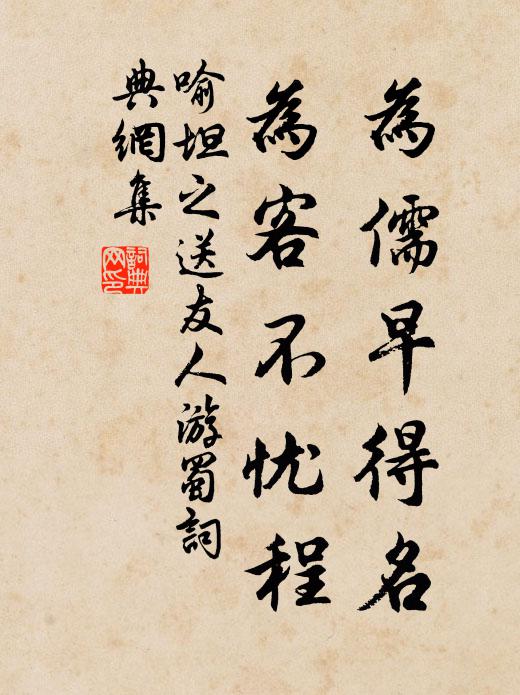 為儒早得名
為客不忧程
喻坦之送友人游蜀詞
典網集
詞典
网印